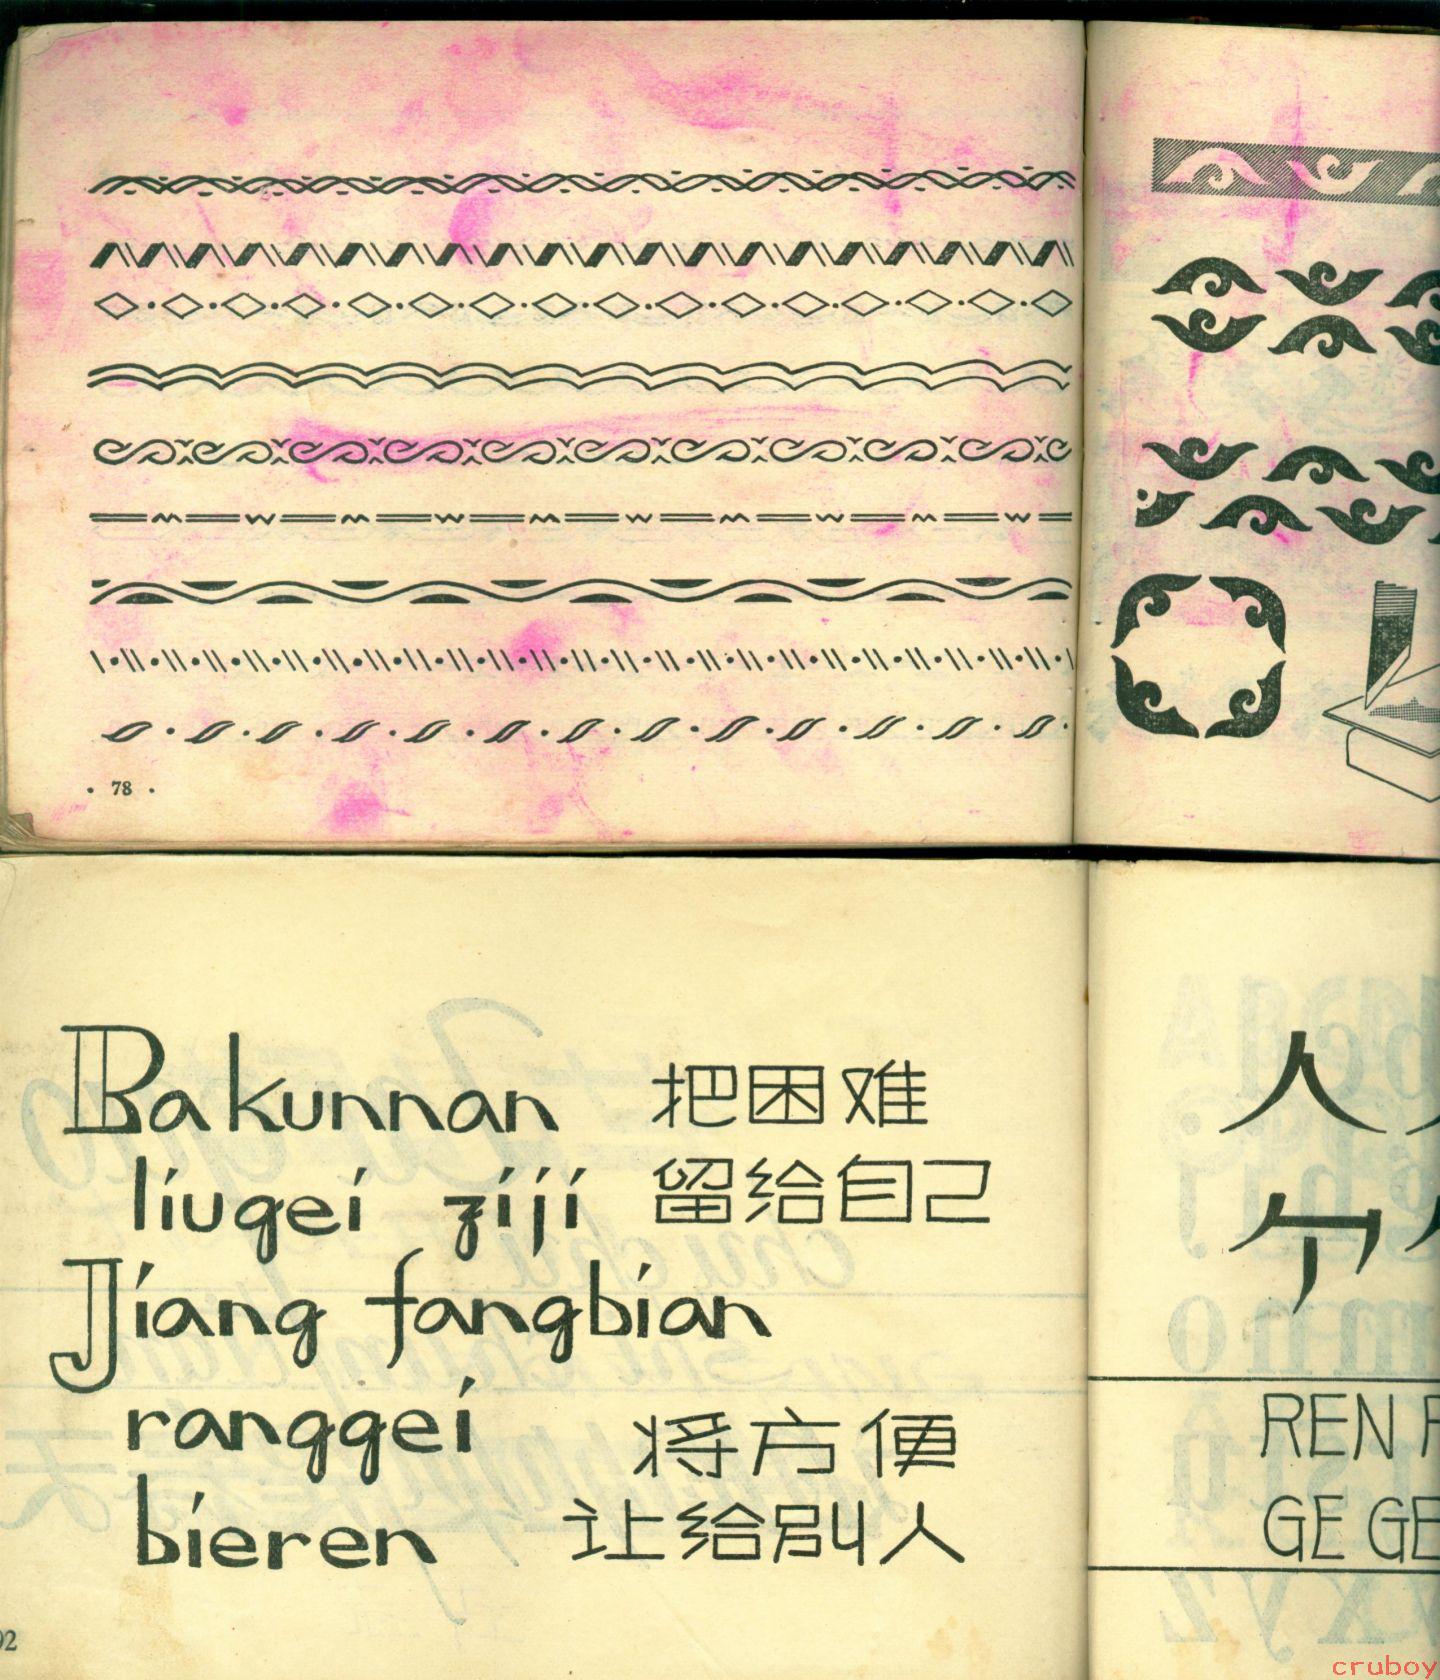 · 78 ·
Ba kunnan 把困难
liugei ziji 留给自己
Jiang fangbian
ranggei 将方便
bieren 让给别人
92
人
个
REN
GE GE
cruboy